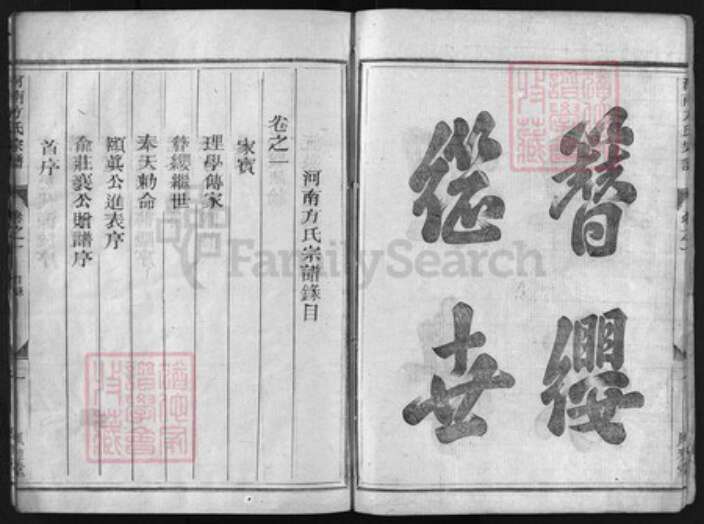 簪纓
繼世
河南方氏宗譜
卷之一
河南方氏宗譜錄目
卷之一
家寶
理學傳家
簪纓繼世
奉天勅命
頤真公進表序
俞莊襄公贈譜序
首序
河南方氏宗譜
卷之一
FamilySearch